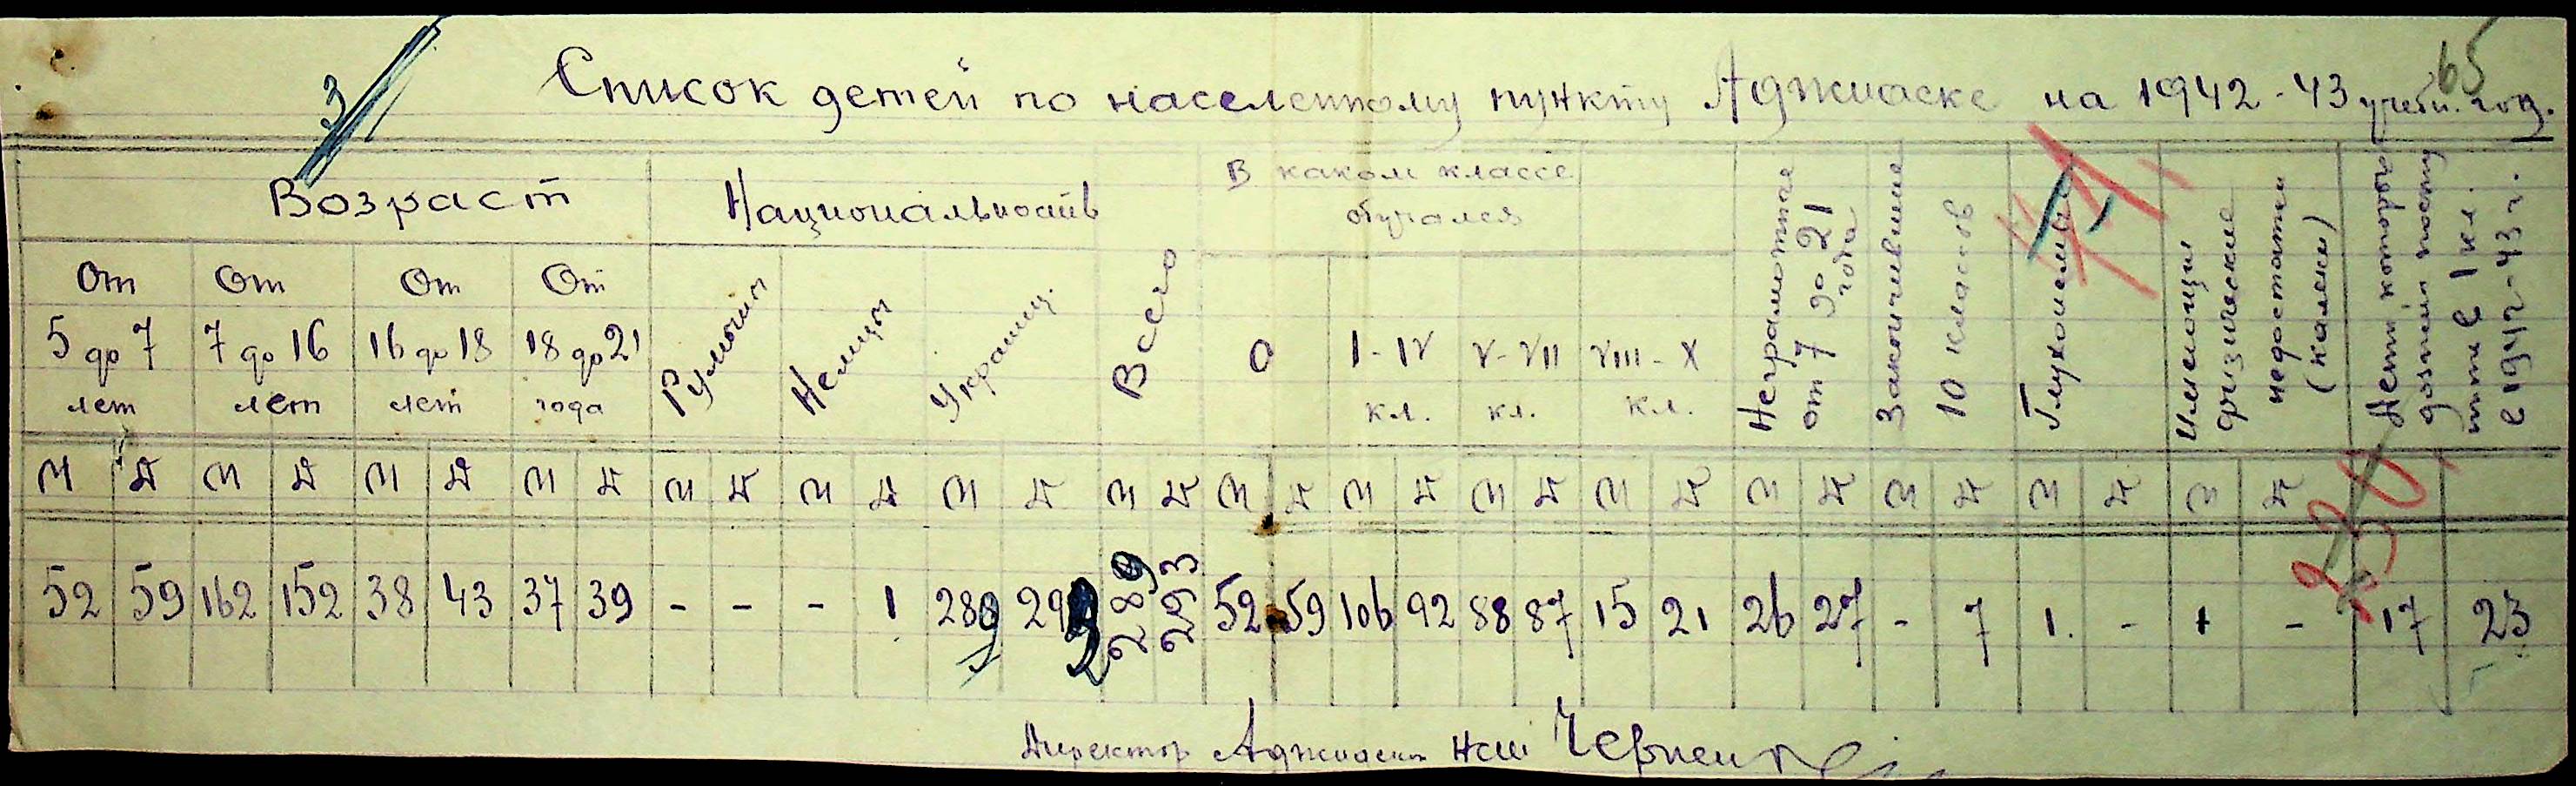 65
3
Список детей по населенному пункту Аджиаске на 1942-43 учебн. год.
Возраст
Национальность
В каком классе
обучался
От
5 до 7
лет
От
7 до 16
лет
От
16 до 18
лет
От
18 до 21
года
Румыны
Немцы
Украинц.
Всего
0
I-IV
кл.
V-VII
кл.
VIII-X
кл.
Неграмотные
от 7 до 21
года
Закончившие
10 классов
Глухонемые
Имеющие
физические
недостатки
(калеки)
Дети которые
должны посту
пить в 1 кл.
в 1942-43 г.
М Д М Д М Д М Д М Д М Д М Д М Д М Д М Д М Д М Д М Д М Д М Д М Д
52 59 162 152 38 43 37 39 - - - 1 289 292 289 293 52 59 106 92 88 87 15 21 26 27 - 7 1. - 1 - 17 23
Директор Аджиаск НСШ